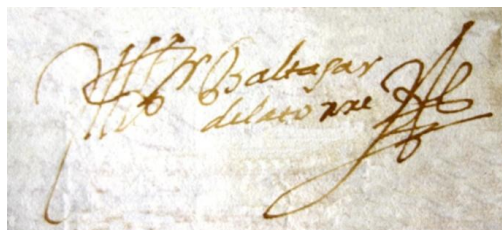 Baltasar
delatorre